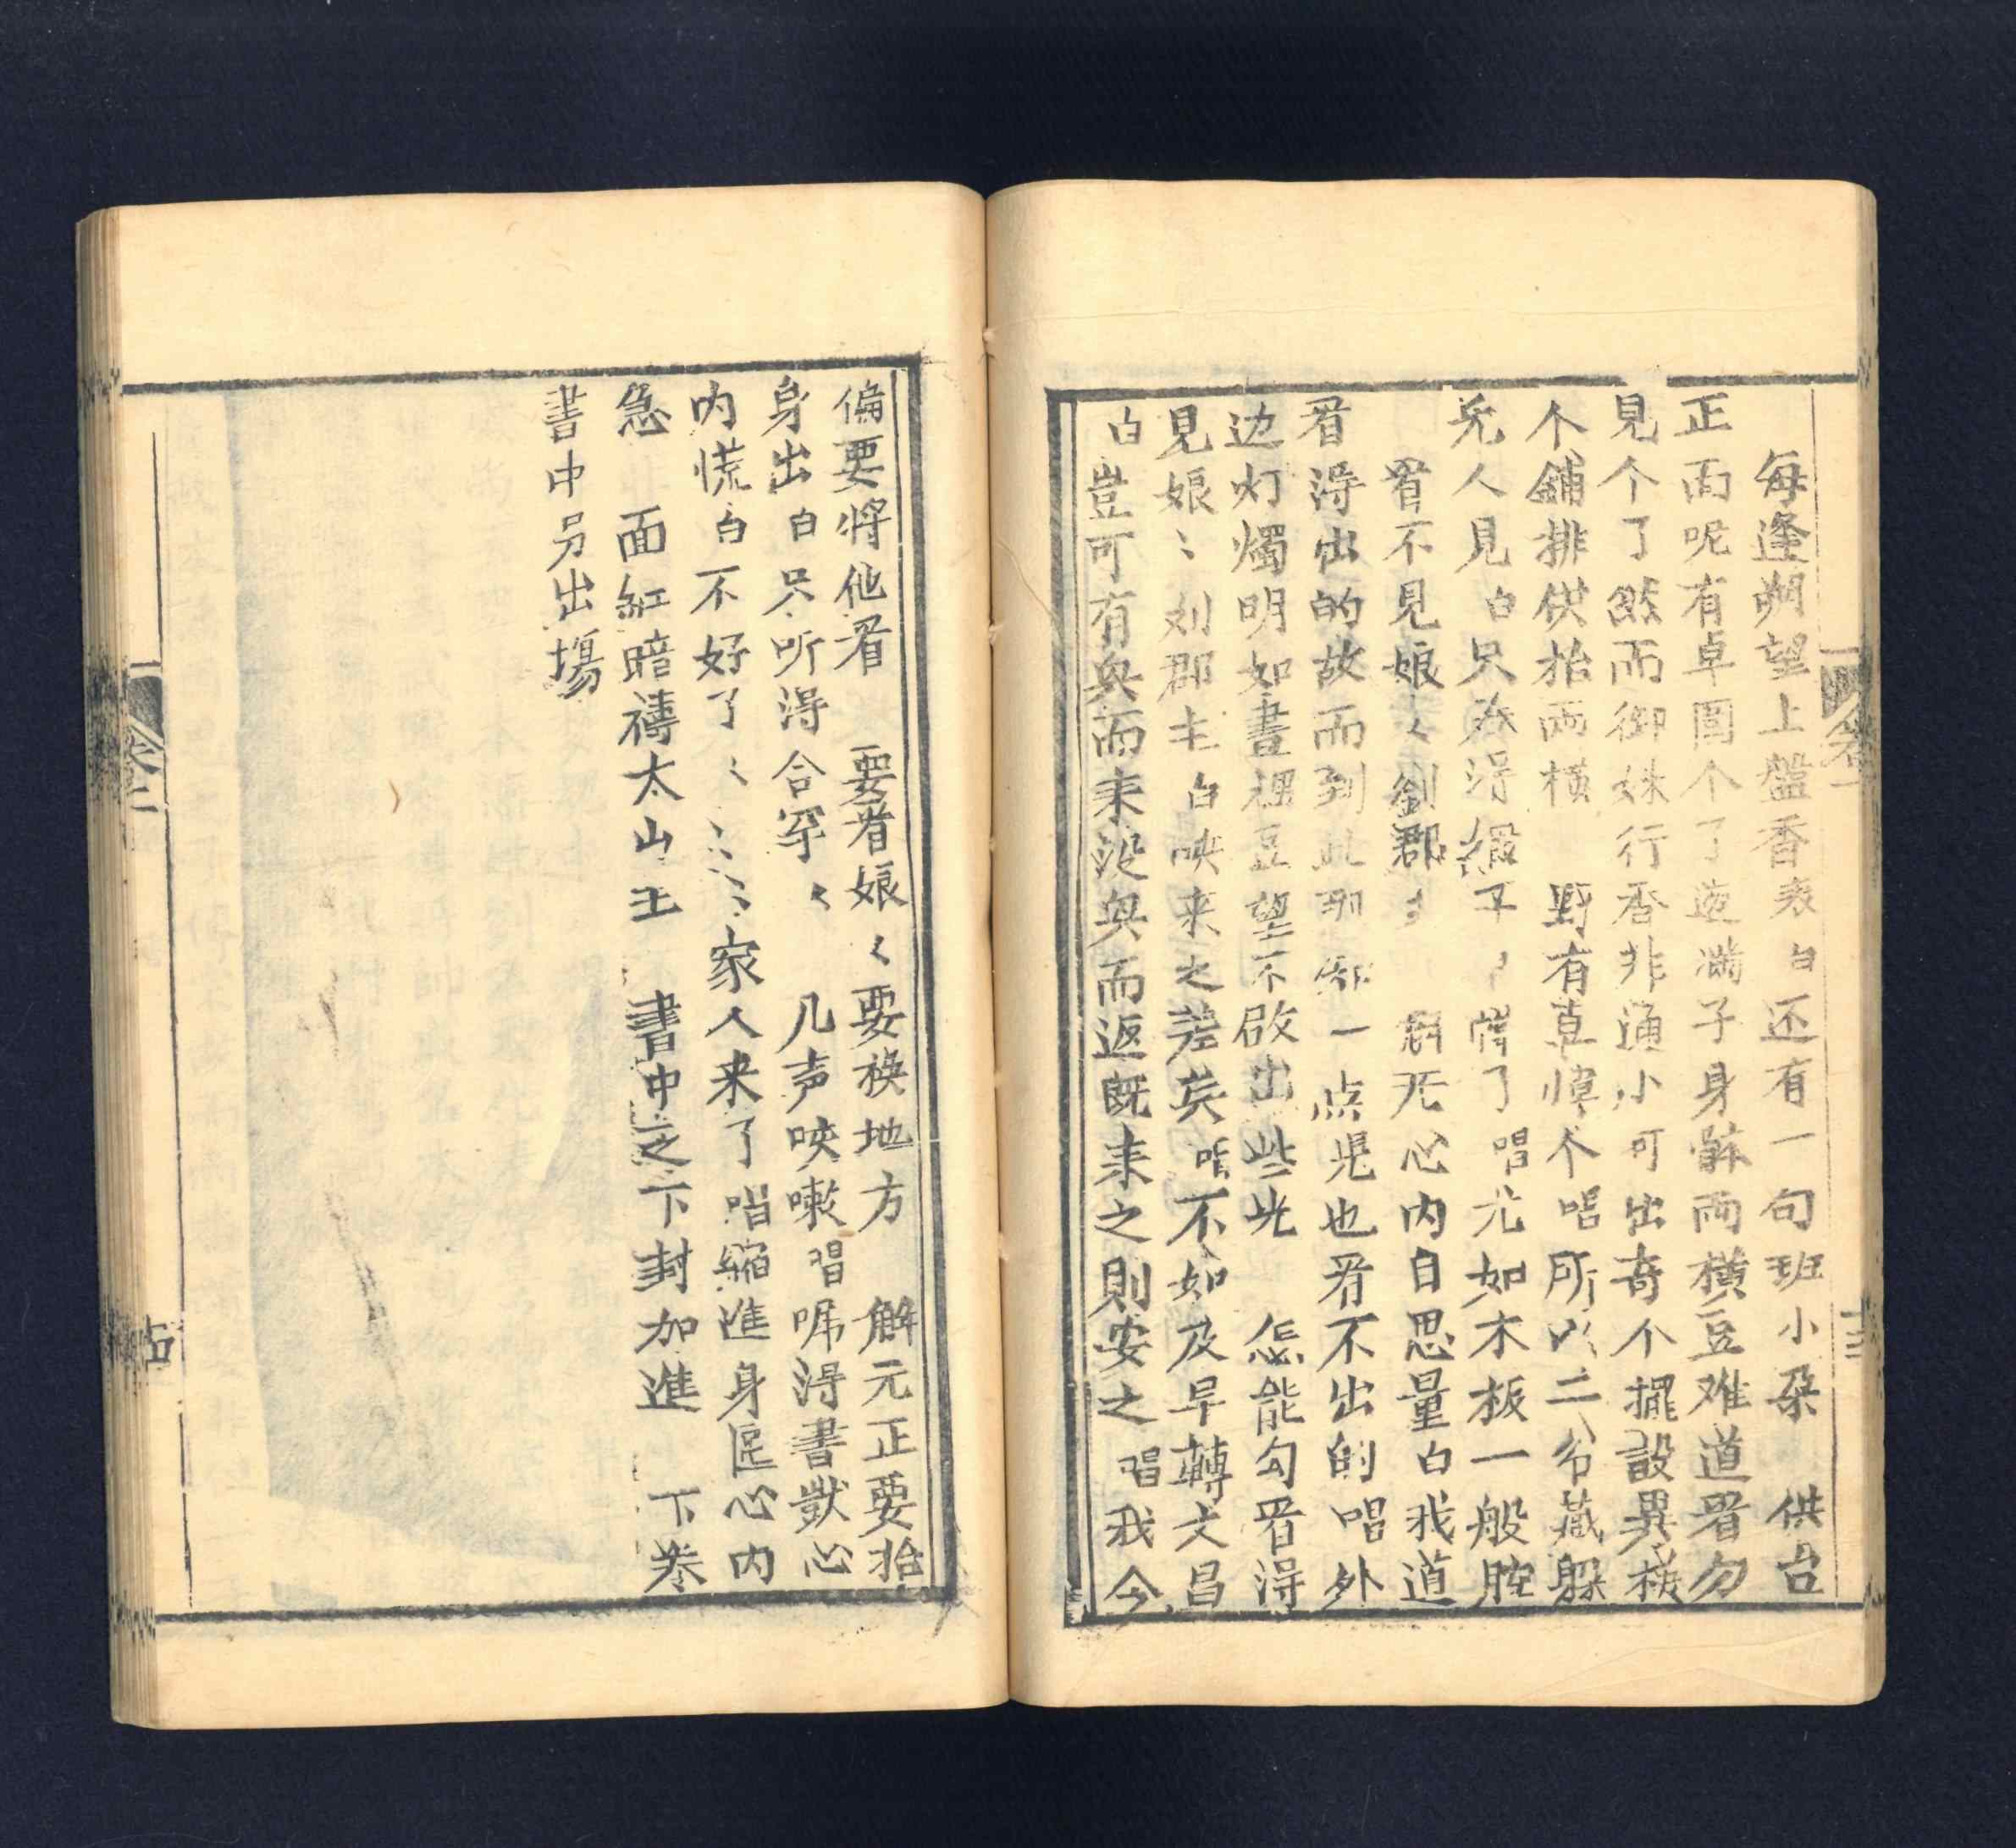 每逢朔望上盤香表白还有一句班小朶 供台
正面呢有卓圍个了遮滿子身觧両横豆难道看勿
見个了然而御妹行香非通小可出奇个擺設異樣
个鋪排供抬両横 野有卓幃个唱所以二爷藏躲
无人見白只 得 子 了唱尤如木板一般腔
看不見娘〻劉郡主 觧无心内自思量白我道
看得出的故而到此 一点児也看不出的唱外
边灯燭明如晝裡豆望不啟出些些 怎能勾看得
見娘〻刘郡主白唊来之差矣唱不如及早轉文昌
白豈可有興而来没興而返既来之則安之唱我今
偏要將他看 要看娘〻要换地方 觧元正要抬
身出白只听得合罕〻 几声唊嗽唱唬得書獃心
内慌白不好了〻〻〻〻家人来了唱縮進身軀心内
急 面紅暗禱太山王 書中之下封加進 下卷
書中另出塲
卷二
卷一
十三